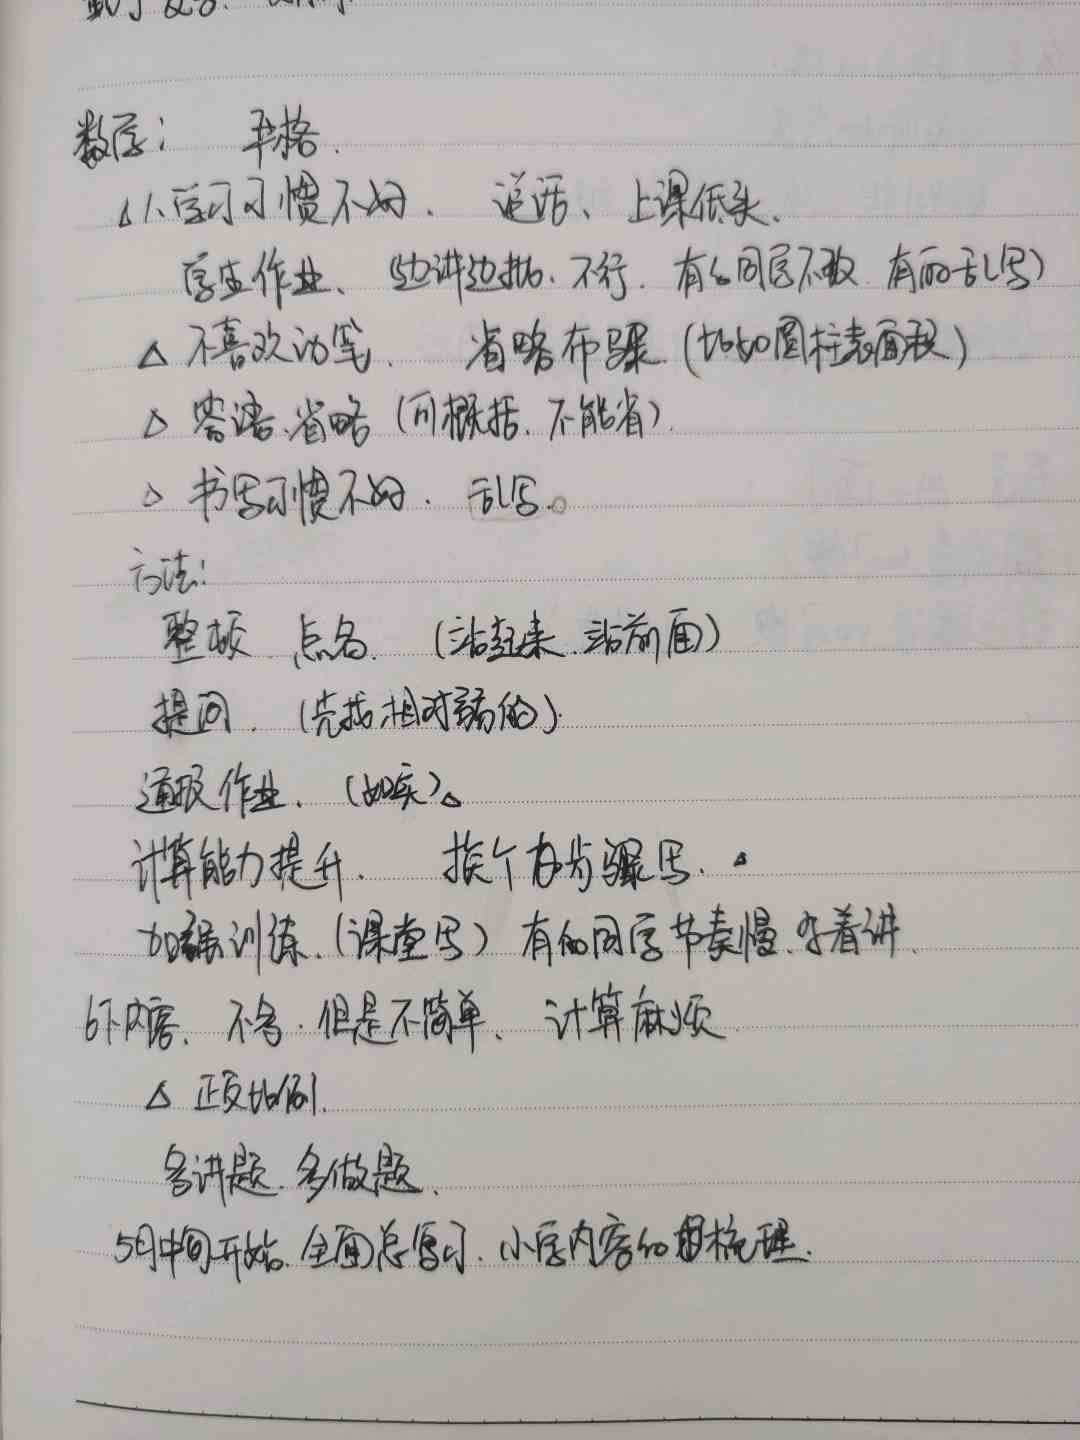 数学： 严格.
△1、学习习惯不好. 说话、上课低头.
学生作业、 边讲边批.不行. 有的同学不改.有的乱写)
△ 不喜欢动笔. 省略布骤.(比如圆柱表面积)
△ 答语.省略 (可概括.不能省).
△ 书写习惯不好. 乱写.
方法：
整顿 点名. (站起来.站前面)
提问. (先找相对弱的).
通报作业. (如实)。
计算能力提升. 挨个步骤写.
加强训练.(课堂写) 有的同学节奏慢.等着讲.
6下内容、不多.但是不简单、 计算麻烦.
△ 正反比例.
多讲题.多做题.
5月中旬开始.全面总复习.小学内容的梳理.